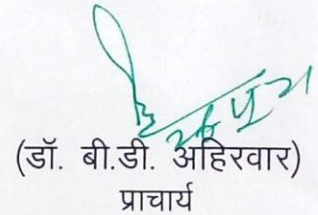 (डॉ. बी.डी. अहिरवार)
प्राचार्य